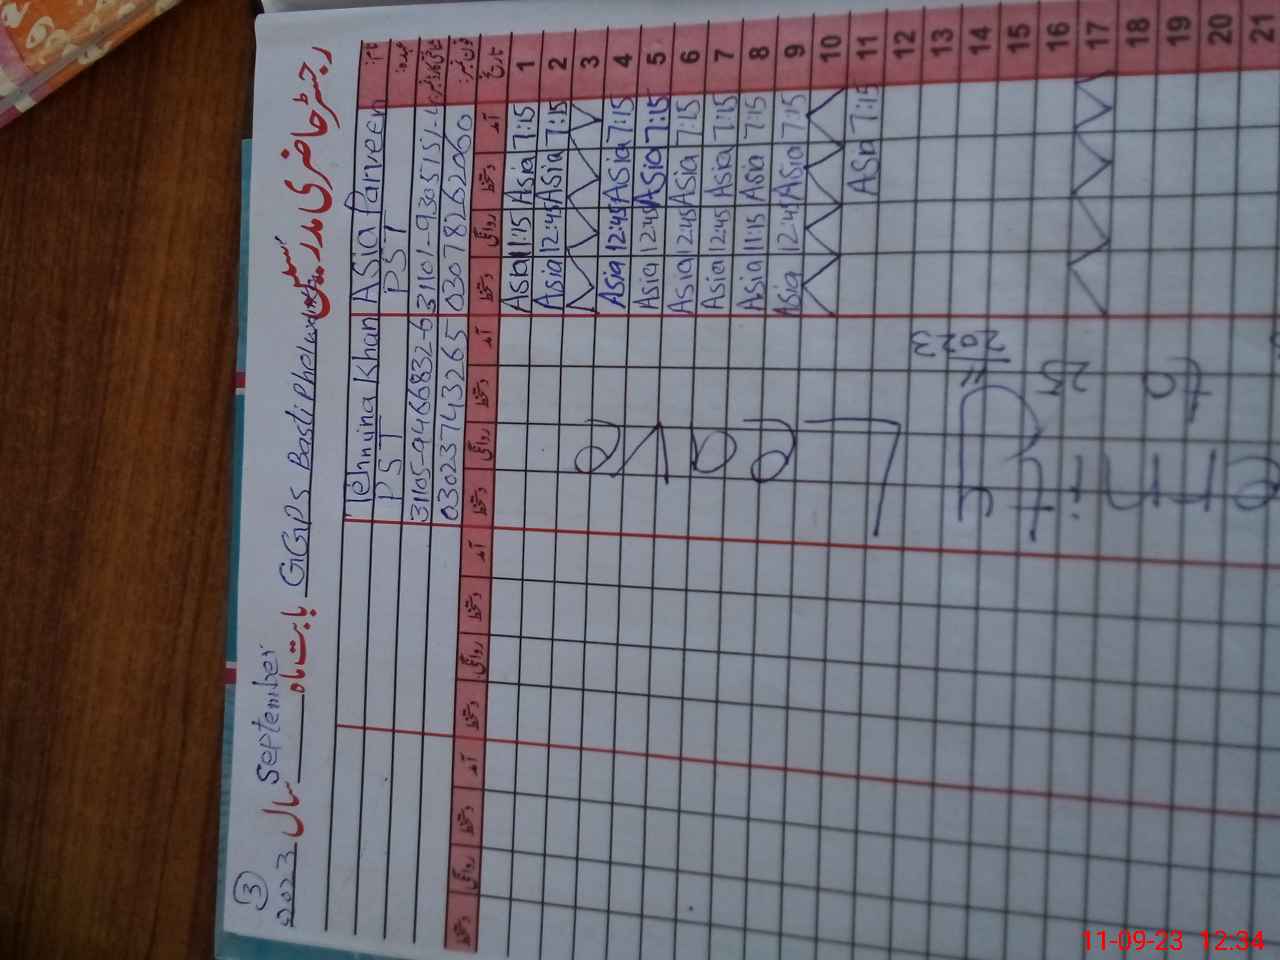 3
رجسٹر حاضری مدرسین GGPS Basti Phelwan بابت ماہ September سال 2023
نام: Asia Parveen Tehmina Khan
عہدہ: PST PST
31101-9305151- 31105-9466832-6
فون نمبر: 03078262060 03023743265
تاریخ آمد دستخط روانگی دستخط آمد دستخط روانگی دستخط آمد دستخط روانگی دستخط آمد دستخط روانگی دستخط
1 7:15 Asia 11:15 Asia
2 7:15 Asia 12:45 Asia
3
4 7:15 Asia 12:45 Asia
5 7:15 Asia 12:45 Asia
6 7:15 Asia 12:45 Asia
7 7:15 Asia 12:45 Asia
8 7:15 Asia 11:15 Asia
9 7:15 Asia 12:45 Asia
10
11 7:15 Asia
12
13
14
15
16
17
18
19
20
21
2023
11-09-23 12:34